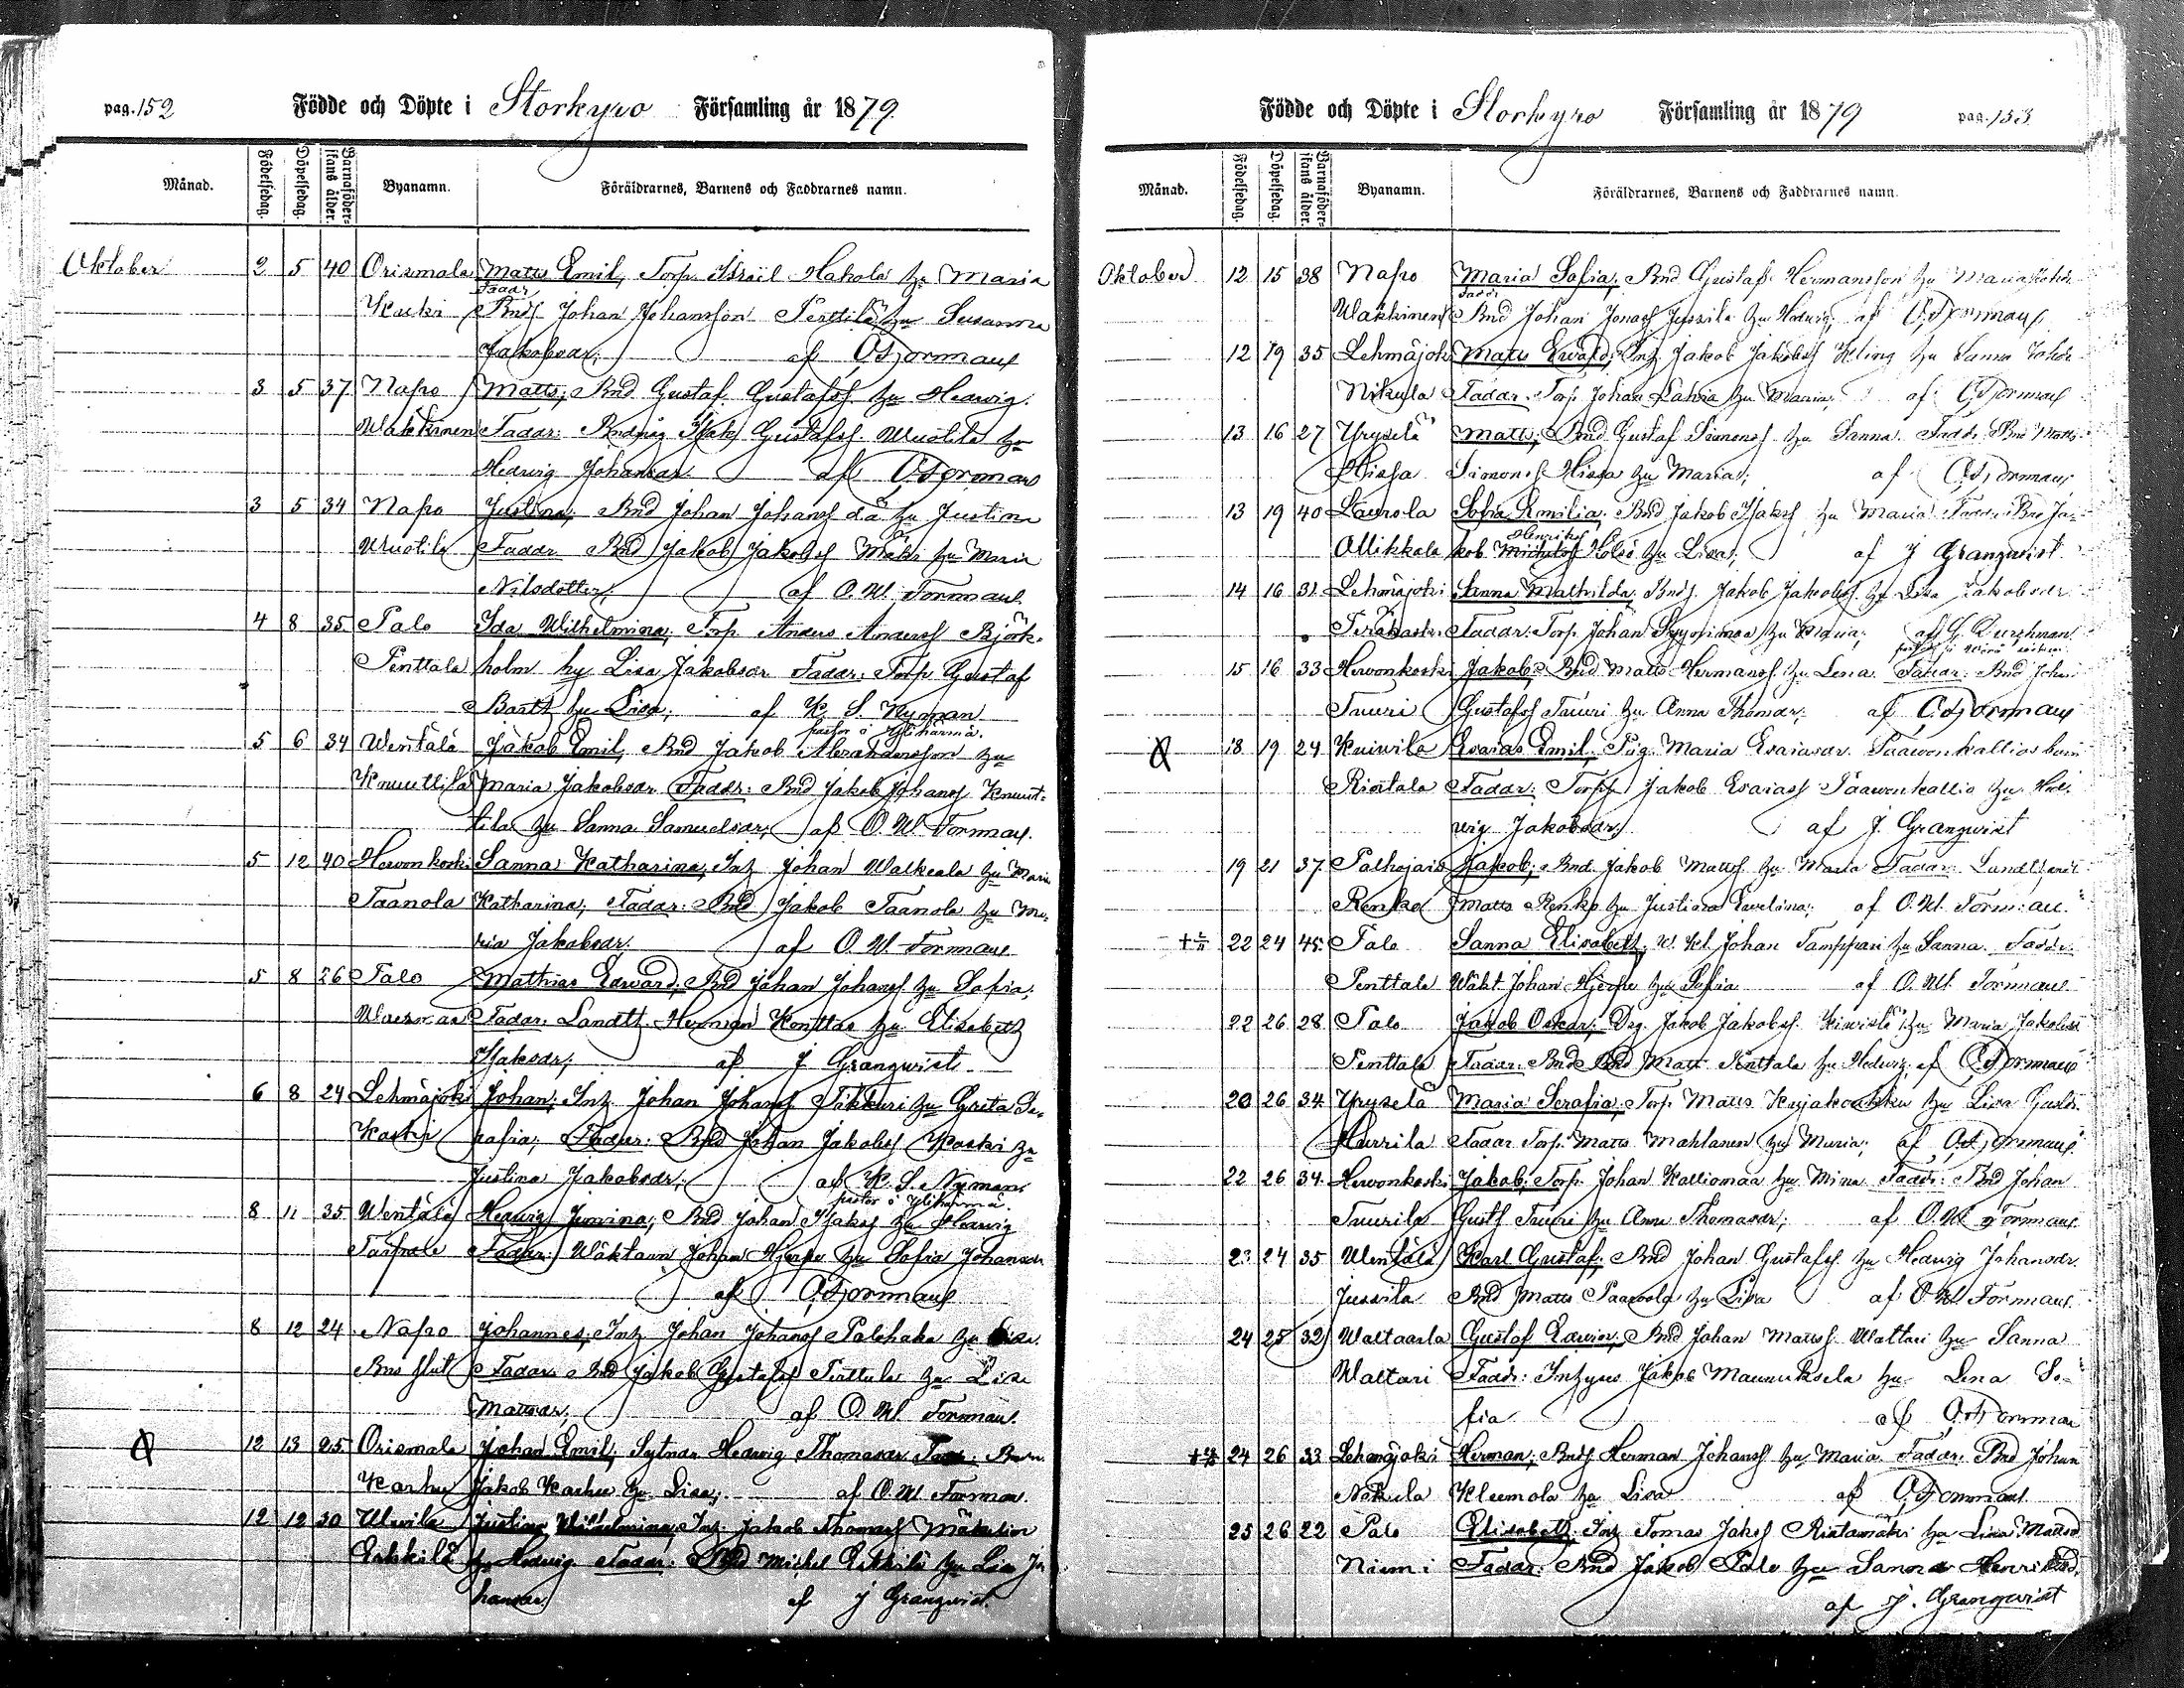 pag. 152 Födde och Döpte i Storkyro Församling år 1879.
Månad. Födelsedag. Döpelsedag. Barnaföderskans ålder. Byanamn. Föräldrarnes, Barnens och Faddrarnes namn.
Oktober 2 5 40 Orismala Matts Emil, Torp. Israel Hakola hu Maria
Faddr
Kuki Bnds Johan Johansson Penttilä hu Susanna
Jakobsdr; af O W Formans
3 5 37 Napo Matts; Bnd Gustaf Gustafss hu Hedwig.
Wäkkinen Faddr: Gustafss. Wuolila hu
Hedwig Johansdr. af O W Formans
3 5 34 Napo Justina; Bnd Johan Johanss då hu Justina
Wuolila Faddr Bnd Jakob Jakobss hu Maria
Nilsdotter; af O. W. Formans
4 8 35 Palo Ida Wilhelmina; Torp Anders Anderss Björk-
Penttala holm hu Lisa Jakobsdr Faddr: Torp Gustaf
Barth hu Lisa; af K. S. Nyman
pastor i Ylihärmä.
5 6 34 Wentälä Jakob Emil, Bnd Jakob Abrahamsson hu
Knuuttila Maria Jakobsdr Faddr: Bnd Jakob Johanss Knuut-
tila hu Sanna Samuelsdr; af O. W. Formans.
5 12 40 Herwonkoski Sanna Katharina, Inh Johan Walkeala hu Maria
Taanola Katharina, Faddr: Bnd Jakob Taanola hu Ma-
ria Jakobsdr. af O. W. Formans
5 8 26 Palo Mathias Edward, Bnd Johan Johanss hu Sofia;
Faddr. Landth Herman Konttas hu Elisabeth
Isaksdr; af J Granqwist
6 8 24 Lehmäjoki Johan; Inh Johan Johanss Takkuri hu Greta Se-
Koski rafia; Faddr: Bnd Johan Jakobss Koski hu
Justina Jakobsdr; af K. S. Nyman
pastor i Ylihärmä.
8 11 35 Wentälä Hedwig Jemina; Bnd Johan Isakss hu Hedwig
Faddr: Wäktarn Johan Hjerpe hu Sofia Johansdr
af O W Formans
8 12 24 Napo Johannes; Inh Johan Johanss Palohaka hu Lisa.
Faddr. Bnd Jakob Gustafss Penttala hu Lisa
Mattsdr; af O. W. Formans.
12 13 25 Orismala Johan Emil; Sytnar Hedwig Thomasdr
Karhu Jakob Karhu hu Lisa; af O. W. Formans.
12 12 30 Ulwila Justina Wilhelmina, Inh. Jakob Thomass
Erkkilä hu Hedwig Faddr: Bnd Michel Erkkilä hu Lisa Jo-
hansdr. af J Granqwist.
Födde och Döpte i Storkyro Församling år 1879 pag. 153
Månad. Födelsedag. Döpelsedag. Barnaföderskans ålder. Byanamn. Föräldrarnes, Barnens och Faddrarnes namn.
Oktober 12 15 38 Napo Maria Sofia; Bnd Gustaf Hermansson hu Maria
Faddr
Wäkkinen Bnd Johan Jonass Jussila hu Hedwig, af O W Formans
12 19 35 Lehmäjoki Matts Edvard; Inh Jakob Jakobss Kling hu Sanna
Nikula Faddr. Torp Johan Lahna hu Maria; af O W Formans
13 16 27 Yryselä Matts; Bnd Gustaf Simonss hu Sanna. Faddr: Bnd Matts
Hissa Simonss Hissa hu Maria; af O W Formans
13 19 40 Laurola Sofia Emilia. Bnd Jakob Isakss hu Maria Faddr: Bnd Ja-
Henrikss
Ollikkala kob Hölsö hu Lisa; af J Granqwist.
14 16 31. Lehmäjoki Sanna Mathilda; Bnds. Jakob Jakobss hu Lisa Jakobsdr
Faddr: Torp. Johan hu Maria;
15 16 33 Herwonkoski Jakob; Bnd Matts Hermanss hu Lena Faddr: Bnd Johan
Tauri Gustafss Tauri hu Anna Thomasdr; af O W Formans
18 19 24 Kuiwila Esaias Emil; Pig. Maria Esaiasdr. Paawonkallios barn
Ristala Faddr: Torp Jakob Esaiass Paawonkallio hu Hed-
wig Jakobsdr. af J. Granqwist
19 21 37 Palhojais Jakob; Bnd Jakob Mattss hu Maria Faddr:
Renko Matts Renko hu Justina Ewelina; af O. W. Formans.
22 24 45 Palo Sanna Elisabeth, Johan Tamppari hu Sanna. Faddr
Penttala Wäkt Johan Hjerpe hu Sofia af O. W. Formans
22 26 28 Palo Jakob Oskar; Drg. Jakob Jakobss Kiwistö hu Maria Jakobsdr
Penttala Faddr. Bnd Matts Penttala hu Hedwig, af O W Formans
20 26 34 Yryselä Maria Serafia; Torp Matts hu Lisa Gustdr.
Hurrila Faddr Torp: Matts Mahlanen hu Maria; af O W Formans
22 26 34 Herwonkoski Jakob, Torp. Johan Kalliomaa hu Mina Faddr: Bnd Johan
Taurila Gustss Tauri hu Anna Thomasdr; af O. W Formans.
23 24 35 Wentälä Karl Gustaf; Bnd Johan Gustafss hu Hedwig Johansdr
Jussila Bnd Matts Paawola hu Lisa af O W Formans.
24 25 32 Waltaarla Gustaf Edwin; Bnd Johan Mattss Waltari hu Sanna
Waltari Faddr: Jakob Maunuksela hu Lena So-
fia af O. W Formans
24 26 33 Lehmäjoki Herman; Bnds Herman Johanss hu Maria Faddr. Bnd Johan
Nikula Kleemola hu Lisa af O. W Formans
25 26 22 Palo Elisabeth; Inh Tomas Jakss Rintamäki hu Lisa Mattsd.
Niemi Faddr. Bnd Jakob Palo hu Sanna Henriksd.
af J. Granqwist